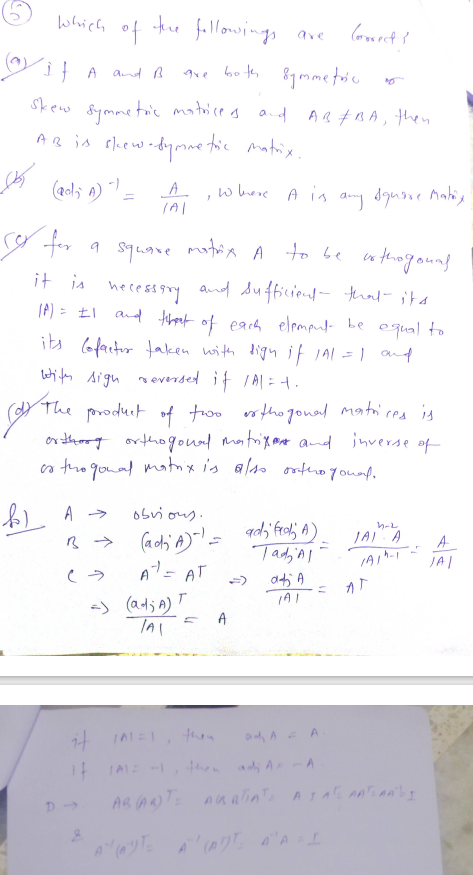 (5) Which of the followings are Correct?
(a) if A and B are both symmetric or
skew symmetric matrices and AB ≠ BA, then
AB is skew-symmetric matrix.
(b) (adj A)⁻¹ = A/|A| , where A is any square matrix
(c) for a square matrix A to be orthogonal
it is necessary and sufficient that its
|A| = ±1 and of each element be equal to
its Cofactor taken with sign if |A| = 1 and
with sign reversed if |A| = -1.
(d) The product of two orthogonal matrices is
orthogonal matrix and inverse of
orthogonal matrix is also orthogonal.
A → obvious.
B → (adj A)⁻¹ = adj(adj A)/|adj A| = |A|ⁿ⁻² · A/|A|ⁿ⁻¹ = A/|A|
C → A⁻¹ = Aᵀ ⇒ adj A/|A| = Aᵀ
⇒ (adj A)ᵀ/|A| = A
if |A| = 1, then adj A = A.
if |A| = -1, then adj A = -A.
D → AB(AB)ᵀ = A B BᵀAᵀ = A I Aᵀ = AAᵀ = AA⁻¹ = I
& A⁻¹(A⁻¹)ᵀ = A⁻¹(Aᵀ)ᵀ = A⁻¹A = I